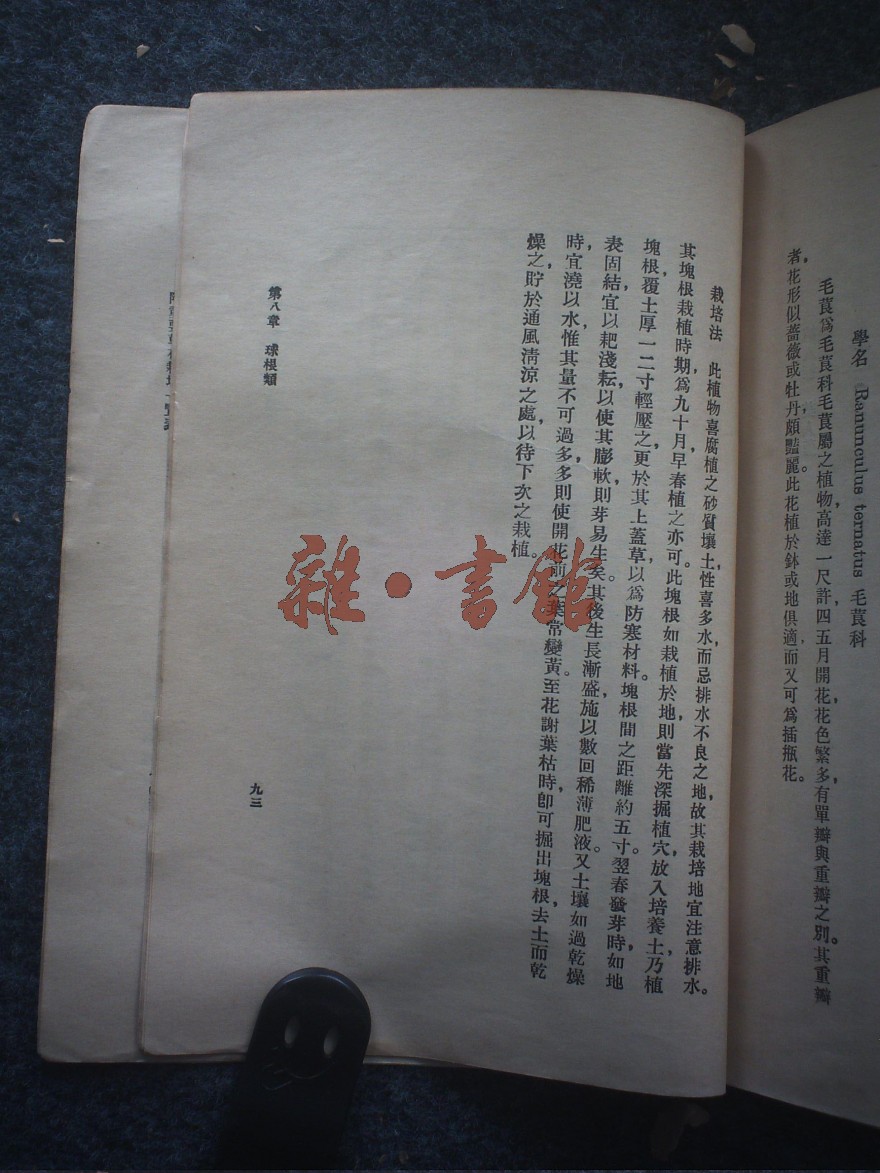 學名 Ranunculus ternatus 毛莨科
毛莨爲毛莨科毛莨屬之植物，高達一尺許，四五月開花，花色繁多，有單瓣與重瓣之別。其重瓣
者，花形似薔薇或牡丹，頗豔麗。此花植於鉢或地俱適，而又可爲插瓶花。
栽培法　此植物喜腐植之砂質壤土，性喜多水，而忌排水不良之地，故其栽培地宜注意排水。
其塊根栽植時期，爲九十月，早春植之亦可。此塊根如栽植於地，則當先深掘植穴，放入培養土，乃植
塊根，覆土厚一二寸，輕壓之，更於其上蓋草，以爲防寒材料。塊根間之距離約五寸。翌春發芽時，如地
表固結，宜以耙淺耘，以使其膨軟，則芽易生矣。其後生長漸盛，施以數回稀薄肥液。又土壤如過乾燥
時，宜澆以水，惟其量不可過多，多則使開花前之葉常變黃。至花謝葉枯時，卽可掘出塊根，去土而乾
燥之，貯於通風清涼之處，以待下次之栽植。
第八章　球根類
九三
雜·書館